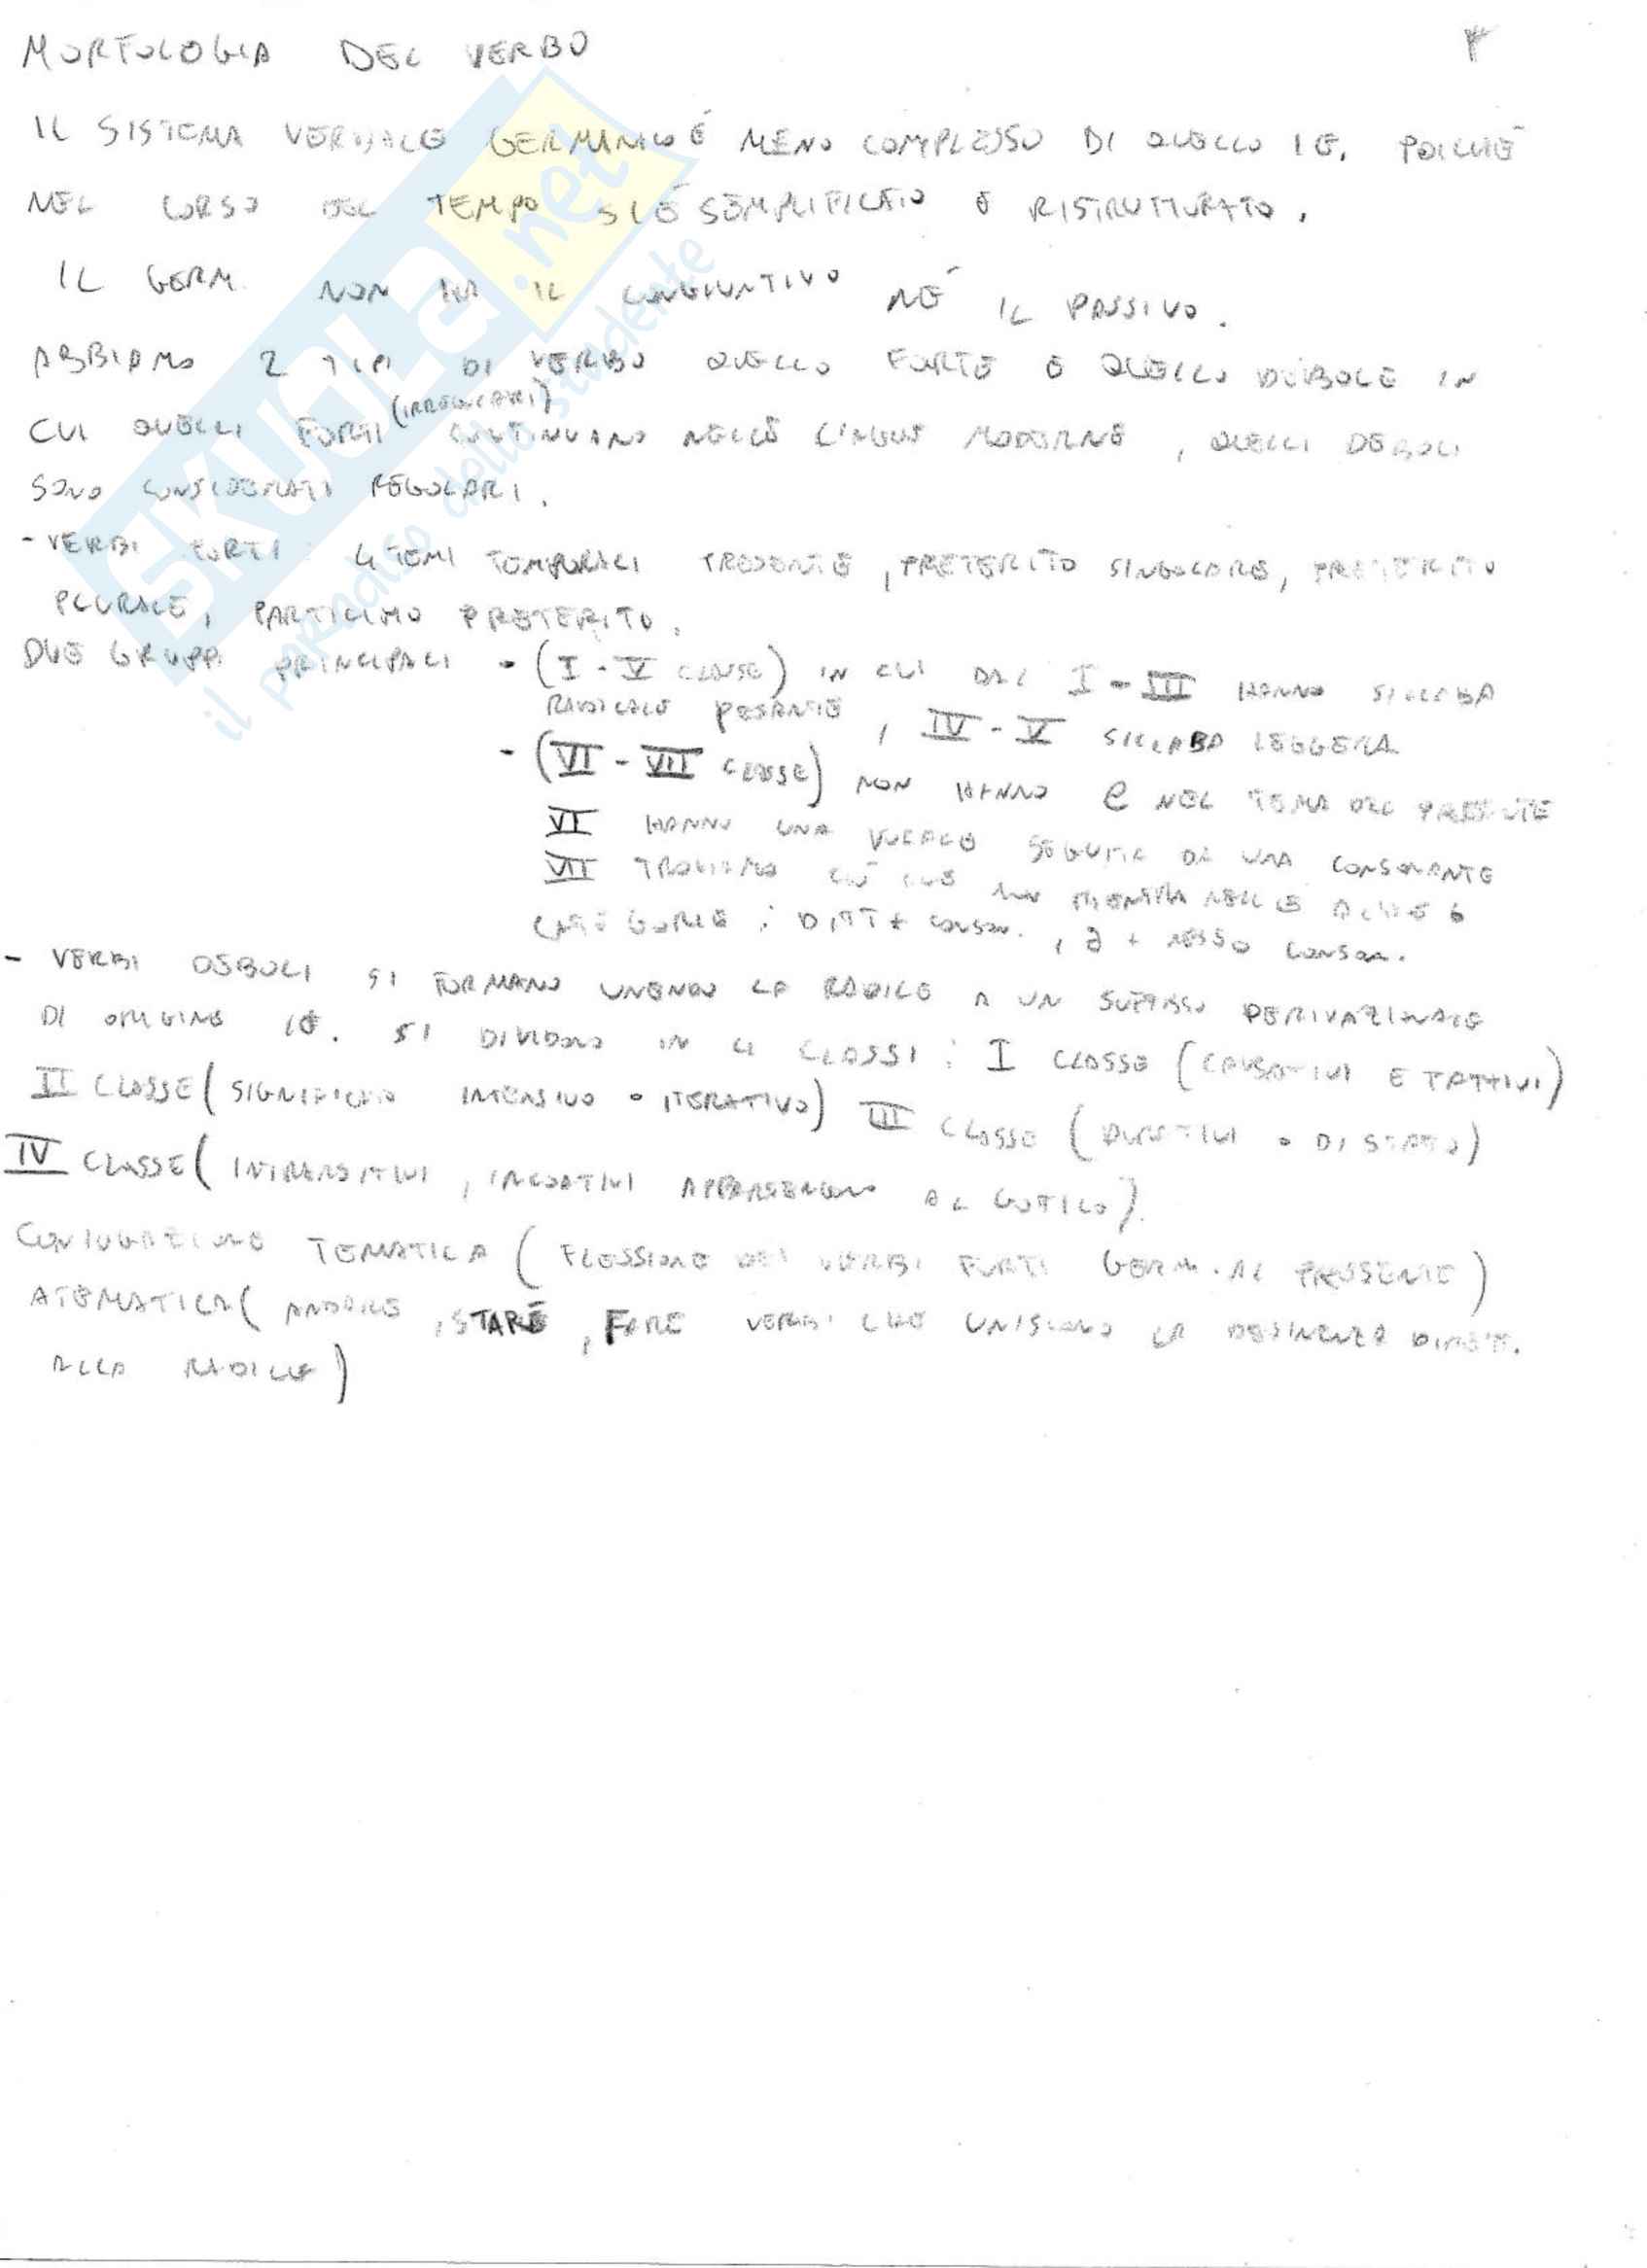 MORFOLOGIA DEL VERBO
IL SISTEMA VERBALE GERMANICO É MENO COMPLESSO DI QUELLO I.E. POICHÉ
NEL CORSO DEL TEMPO SI É SEMPLIFICATO E RISTRUTTURATO.
IL GERM. NON HA IL CONGIUNTIVO NÉ IL PASSIVO.
ABBIAMO 2 TIPI DI VERBO QUELLO FORTE E QUELLO DEBOLE IN
CUI QUELLI FORTI (IRREGOLARI) CONTINUANO NELLE LINGUE MODERNE, QUELLI DEBOLI
SONO CONSIDERATI REGOLARI.
- VERBI FORTI: 4 TEMI TEMPORALI PRESENTE, PRETERITO SINGOLARE, PRETERITO
PLURALE, PARTICIPIO PRETERITO.
DUE GRUPPI PRINCIPALI - (I - V CLASSE) IN CUI DAL I - III HANNO SILLABA
RADICALE PESANTE, IV - V SILLABA LEGGERA
- (VI - VII CLASSE) NON HANNO e NEL TEMA DEL PRESENTE
VI HANNO UNA VOCALE SEGUITA DA UNA CONSONANTE
VII TROVIAMO CIÓ CHE NON RIENTRA NELLE ALTRE 6
CATEGORIE: DITT + CONSON., a + NESSO CONSON.
- VERBI DEBOLI SI FORMANO UNENDO LA RADICE A UN SUFFISSO DERIVAZIONALE
DI ORIGINE IE. SI DIVIDONO IN 4 CLASSI: I CLASSE (CAUSATIVI E FATTIVI)
II CLASSE (SIGNIFICATO INTENSIVO O ITERATIVO) III CLASSE (DURATIVI O DI STATO)
IV CLASSE (INTRANSITIVI, INCOATIVI APPARTENGONO AL GOTICO).
CONIUGAZIONE TEMATICA (FLESSIONE DEI VERBI FORTI GERM. AL PRESENTE)
ATEMATICA (ANDARE, STARE, FARE VERBI CHE UNISCONO LA DESINENZA DIRETT.
ALLA RADICE)
SKUOLa.net
il paradiso dello studente